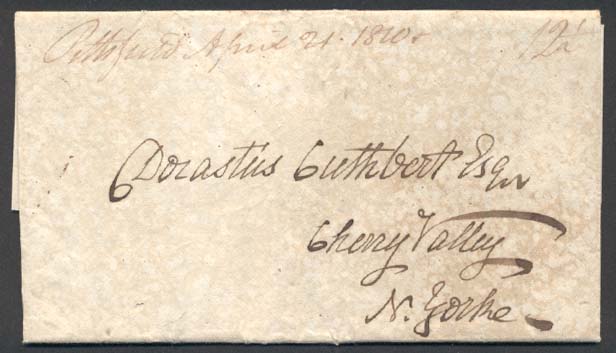 Pittsfield April 21. 1810. 12½
Dorastus Cuthbert Esqr
Cherry Valley
N. Yorke